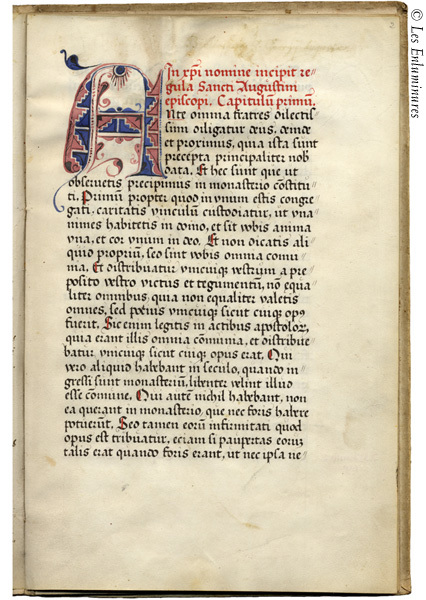 In xpi nomine incipit re-
gula Sancti Augustini
episcopi. Capitulum primũ.
Ante omnia fratres dilectis-
simi diligatur deus, deinde
et proximus, quia ista sunt
precepta principaliter nob
data. Et hec sunt que ut
observetis precipimus in monasterio cõstitu-
ti. Primũ propter quod in unum estis congre-
gati, caritatis vinculũ custodiatur, ut una-
nimes habitetis in domo, et sit vobis anima
una, et cor unum in deo. Et non dicatis ali-
quid proprium, sed sint vobis omnia comu-
nia. Et distribuatur unicuique vestrum a pre-
posito vestro victus et tegumentũ, nõ equa-
liter omnibus, quia non equaliter valetis
omnes, sed potius unicuique sicut cuique op9
fuerit. Sic enim legitis in actibus apostolorum,
quia erant illis omnia cõmunia, et distribue-
batur unicuique sicut cuique opus erat. Qui
vero aliquid habebant in seculo, quando in-
gressi sunt monasteriũ, libenter velint illud
esse cõmune. Qui autem nichil habebant, non
ea querant in monasterio, que nec foris habere
potuerũt. Sed tamen eorum infirmitati quod
opus est tribuatur, eciam si paupertas eorum
talis erat quando foris erant, ut nec ipsa ne-
© Les Enluminures